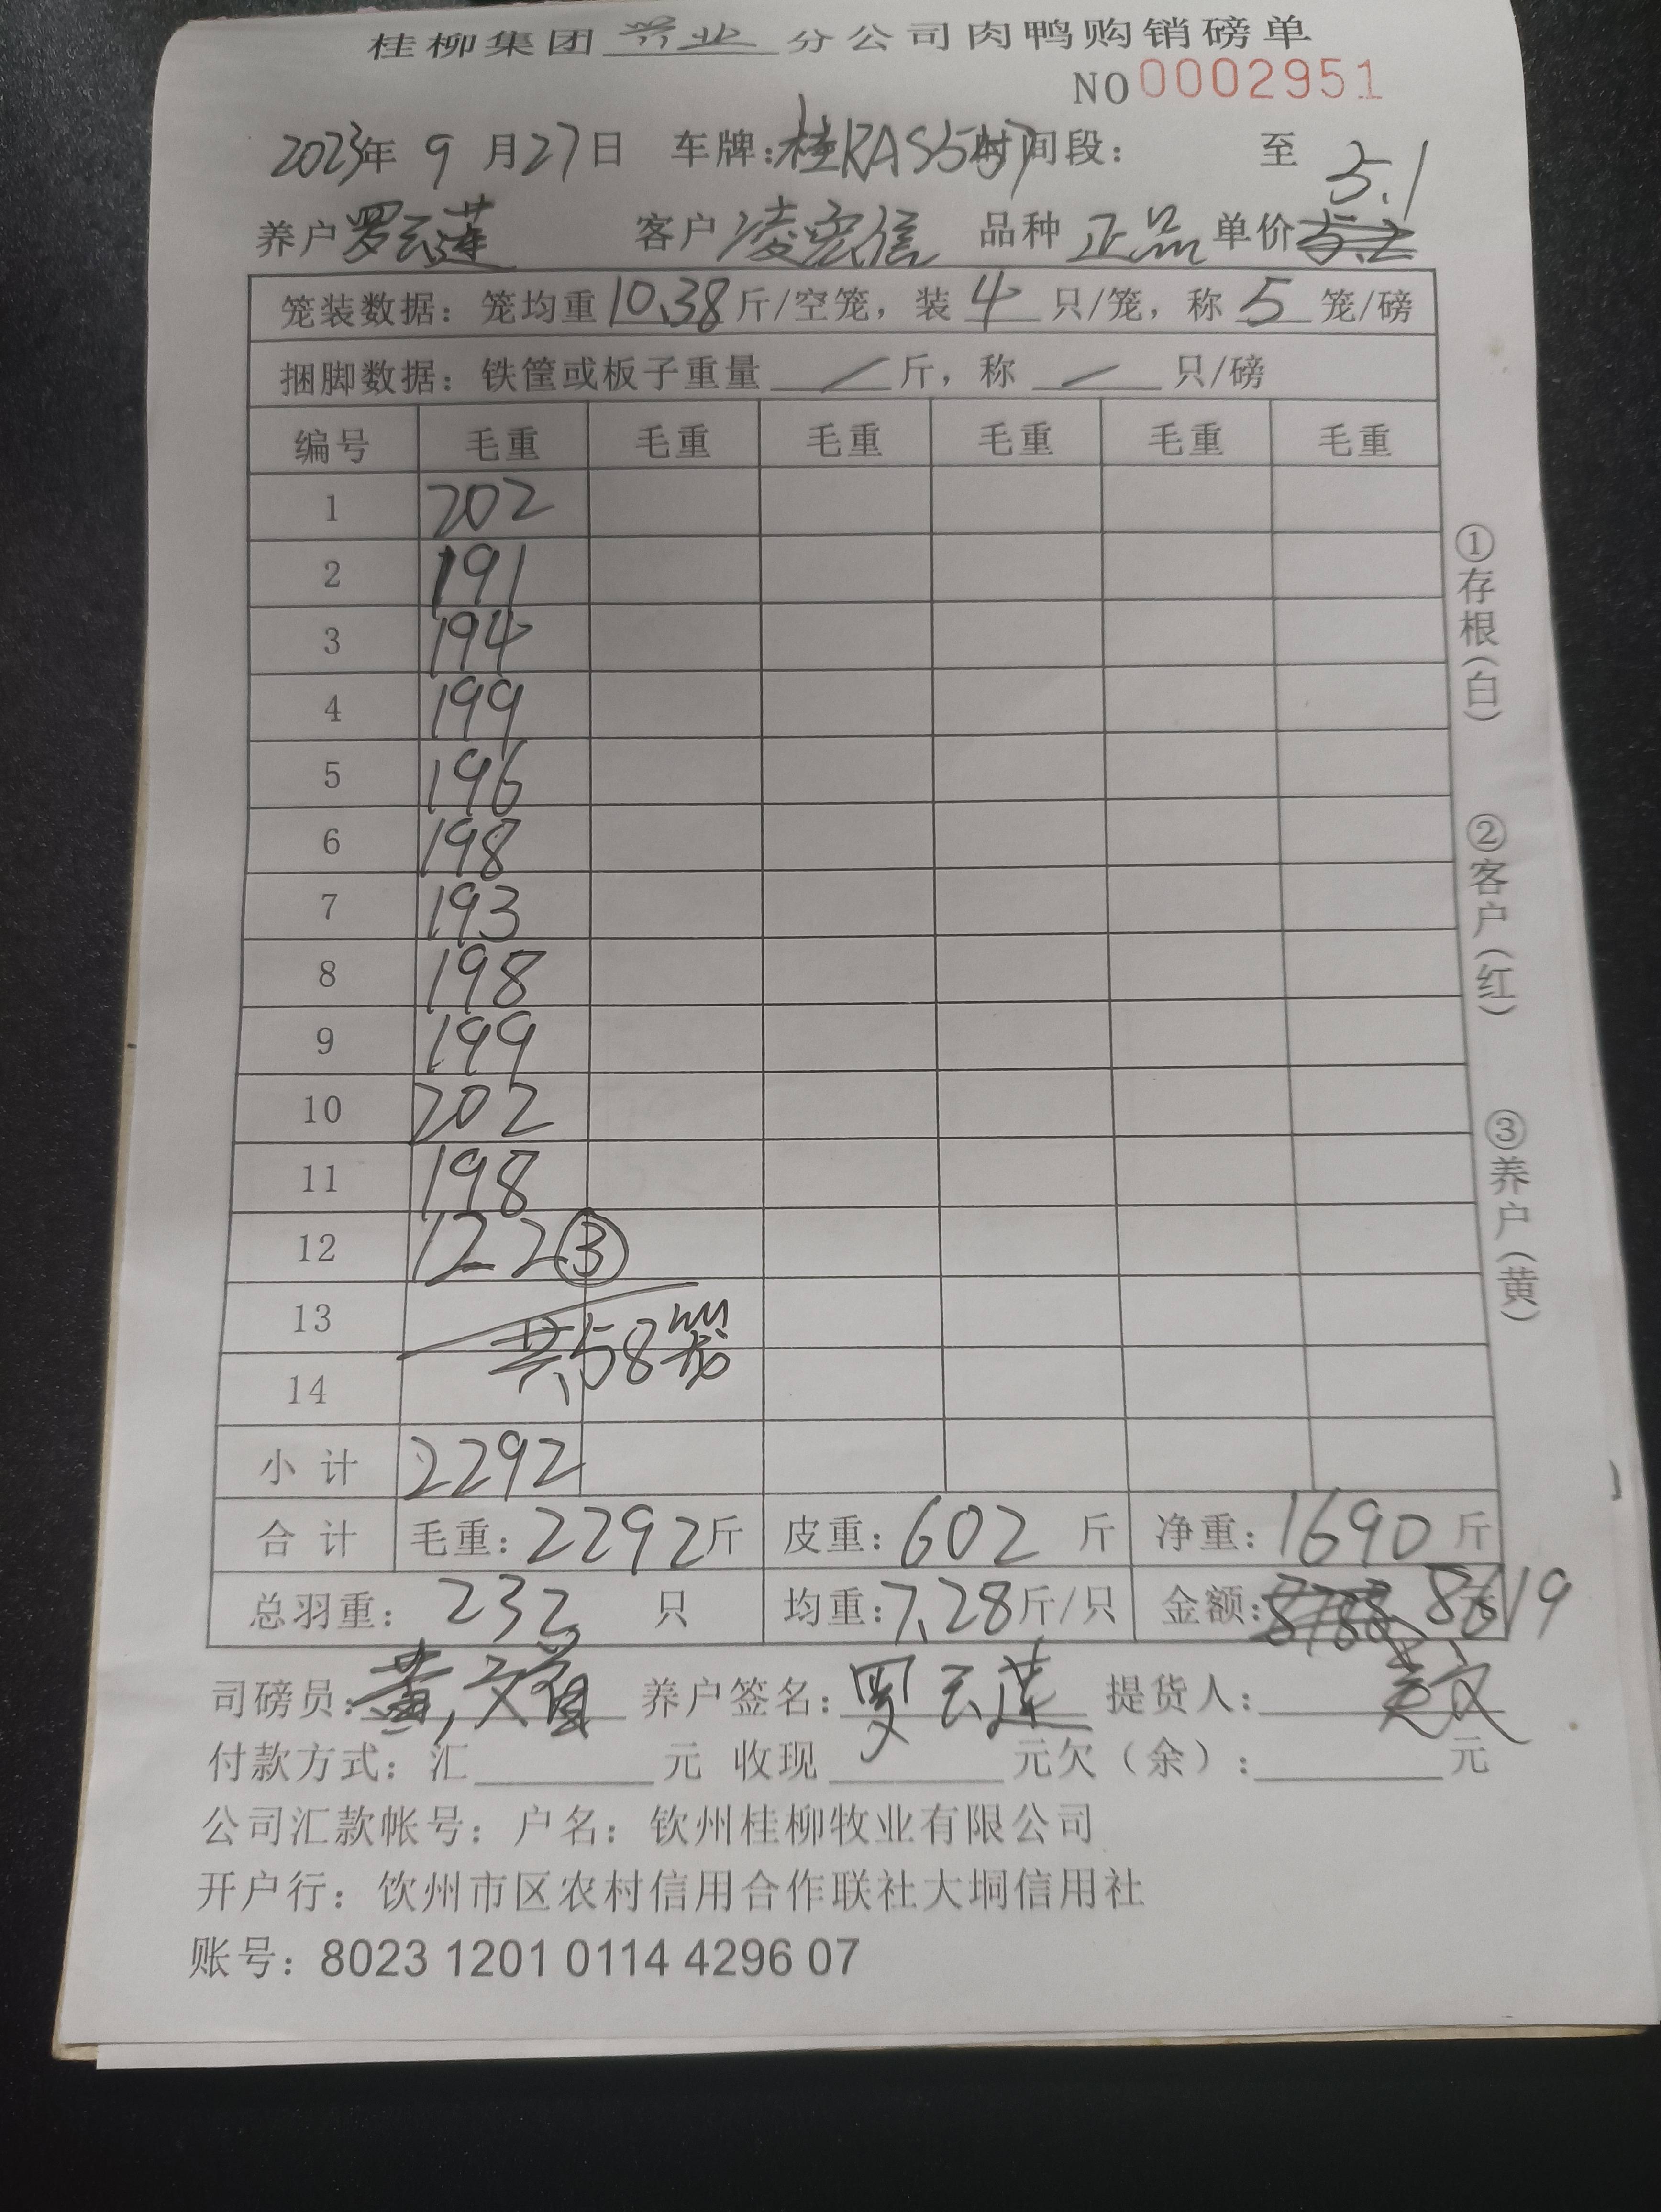 桂柳集团兴业分公司肉鸭购销磅单
NO 0002951
2023年 9 月27日 车牌:桂KAS557时间段: 至
5.1
养户罗云莲 客户凌宏信 品种 正品 单价
笼装数据: 笼均重10.38斤/空笼, 装 4 只/笼, 称 5 笼/磅
捆脚数据: 铁筐或板子重量 / 斤, 称 / 只/磅
编号 毛重 毛重 毛重 毛重 毛重 毛重
1 202
2 191
3 194
4 199
5 196
6 198
7 193
8 198
9 199
10 202
11 198
12 122 ③
13
共58笼
14
小计 2292
合计 毛重: 2292斤 皮重: 602 斤 净重: 1690 斤
总羽重: 232 只 均重: 7.28斤/只 金额: 8619
司磅员: 养户签名: 罗云莲 提货人:
付款方式: 汇 元 收现 元欠(余): 元
公司汇款帐号: 户名: 钦州桂柳牧业有限公司
开户行: 钦州市区农村信用合作联社大垌信用社
账号: 8023 1201 0114 4296 07
①存根(白)
②客户(红)
③养户(黄)